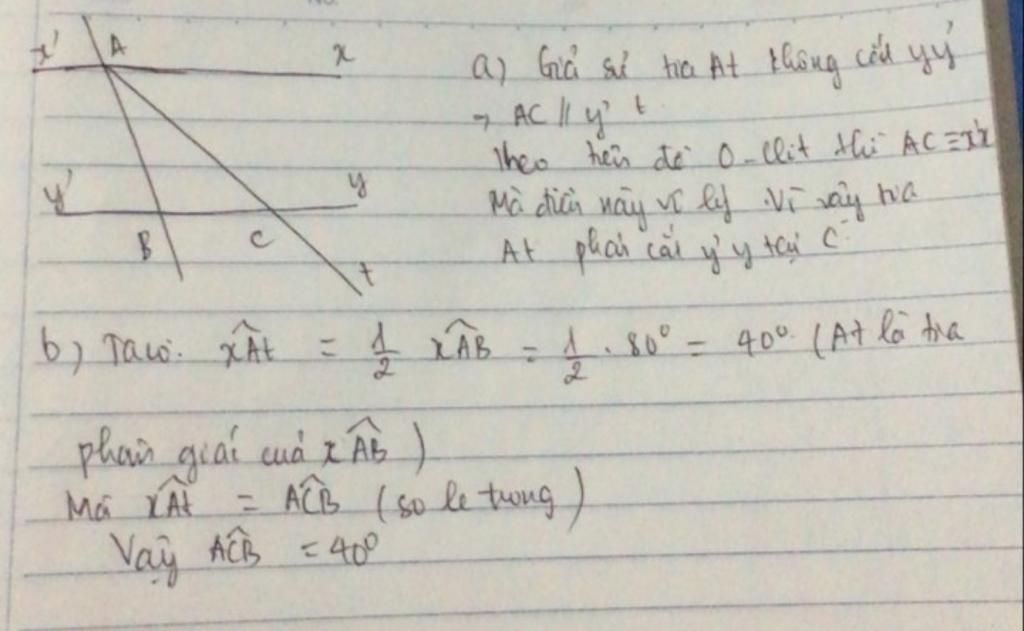 x'
A
x
y'
y
B
C
t
a) Giả sử tia At không cắt yy'
→ AC // y't
Theo tiên đề Ơ-clit thì AC = x'x
Mà điều này vô lý. Vì vậy tia
At phải cắt y'y tại C
b) Ta có: xAt = 1/2 xAB = 1/2 . 80° = 40° (At là tia
phân giác của xAB)
Mà xAt = ACB (so le trong)
Vậy ACB = 40°